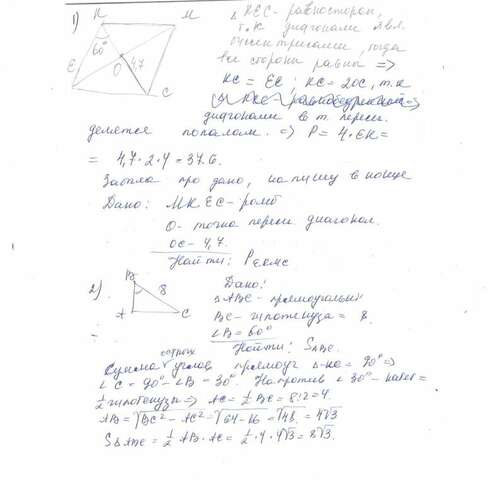 1) K M
60°
E O 4,7 C
△ KEC - равносторон,
т.к диагонали явл.
биссектрисами, тогда
все стороны равны =>
KC = EC; KC = 2OC, т.к
диагонали в т. пересеч.
делятся пополам. => P = 4·EK =
= 4,7·2·4 = 37.6.
Забыла про дано, напишу в конце
Дано: MKEC - ромб
O - точка пересеч диагонал.
OC - 4,7.
Найти: P EKMC
2) B 8
A C
Дано:
△ABC - прямоугольн
BC - гипотенуза = 8.
∠B = 60°
Найти: S ABC.
острых
Сумма углов прямоуг △-ка = 90° =>
∠C = 90° - ∠B = 30°. Напротив ∠30° - катет =
1/2 гипотенузы => AC = 1/2 BC = 8:2 = 4.
AB = √BC² - AC² = √64-16 = √48 = 4√3
S△ABC = 1/2 AB·AC = 1/2·4·4√3 = 8√3.